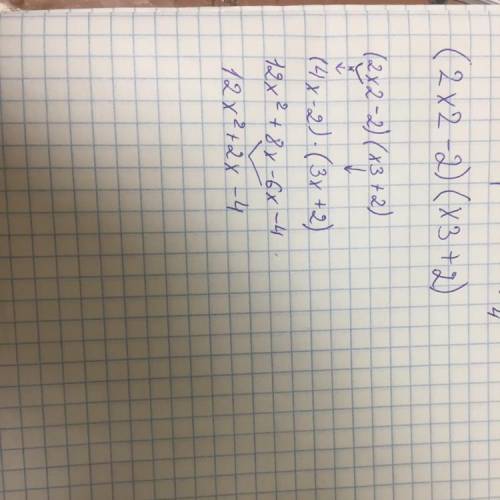 4
(2x2-2)(x3+2)
(2x2-2)(x3+2)
(4x-2)·(3x+2)
12x²+8x-6x-4
12x²+2x-4